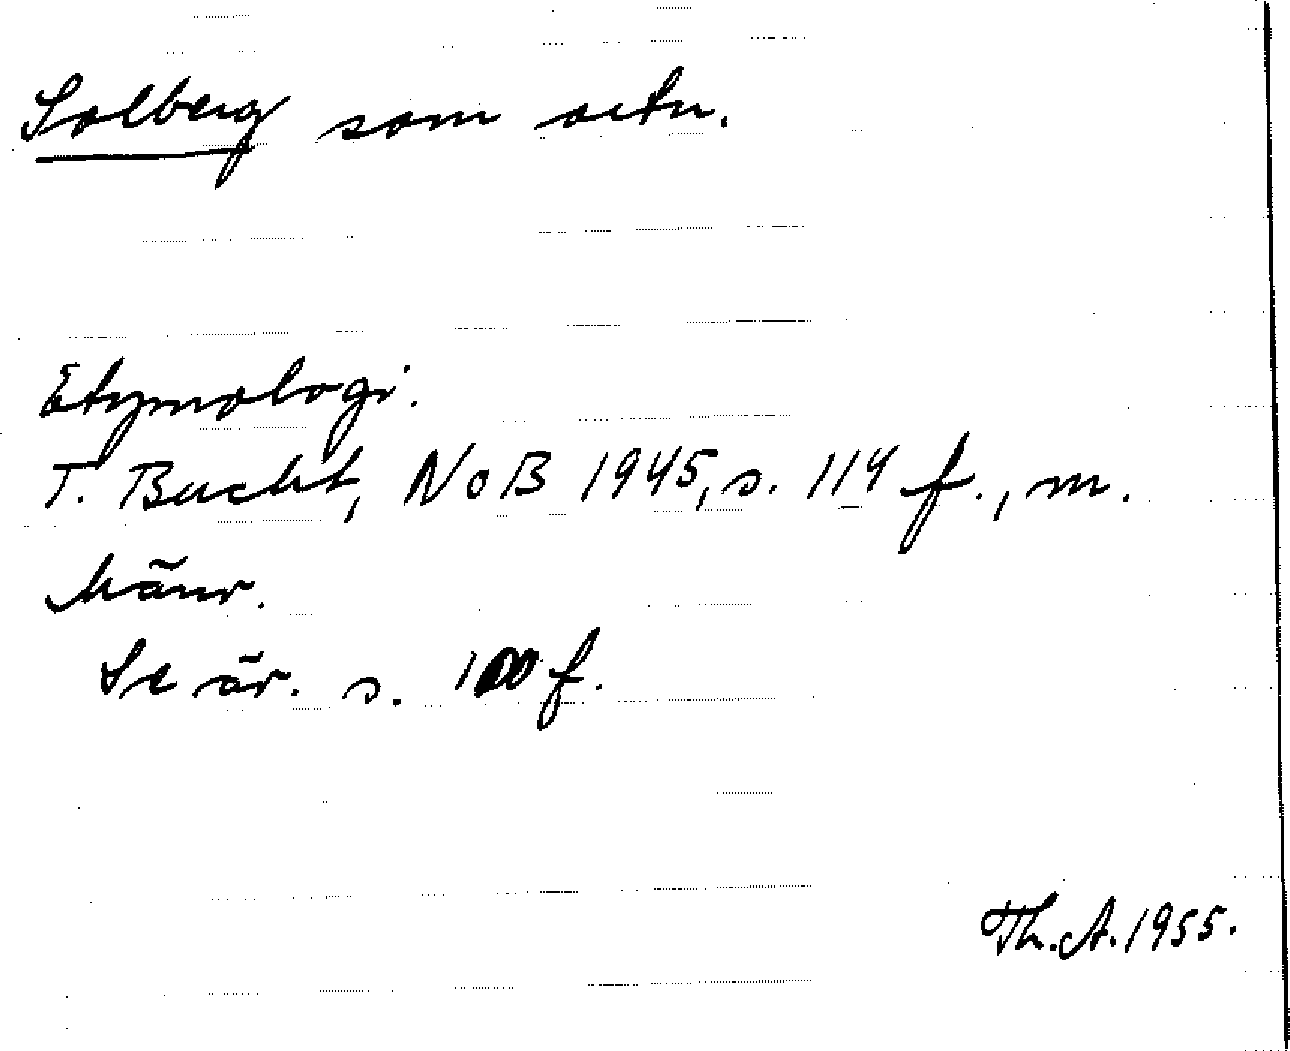 Solberg som ortn.
Etymologi.
T. Bucht, NoB 1945, s. 114 f., m.
hänv.
Se äv. s. 100 f.
Th. A. 1955.